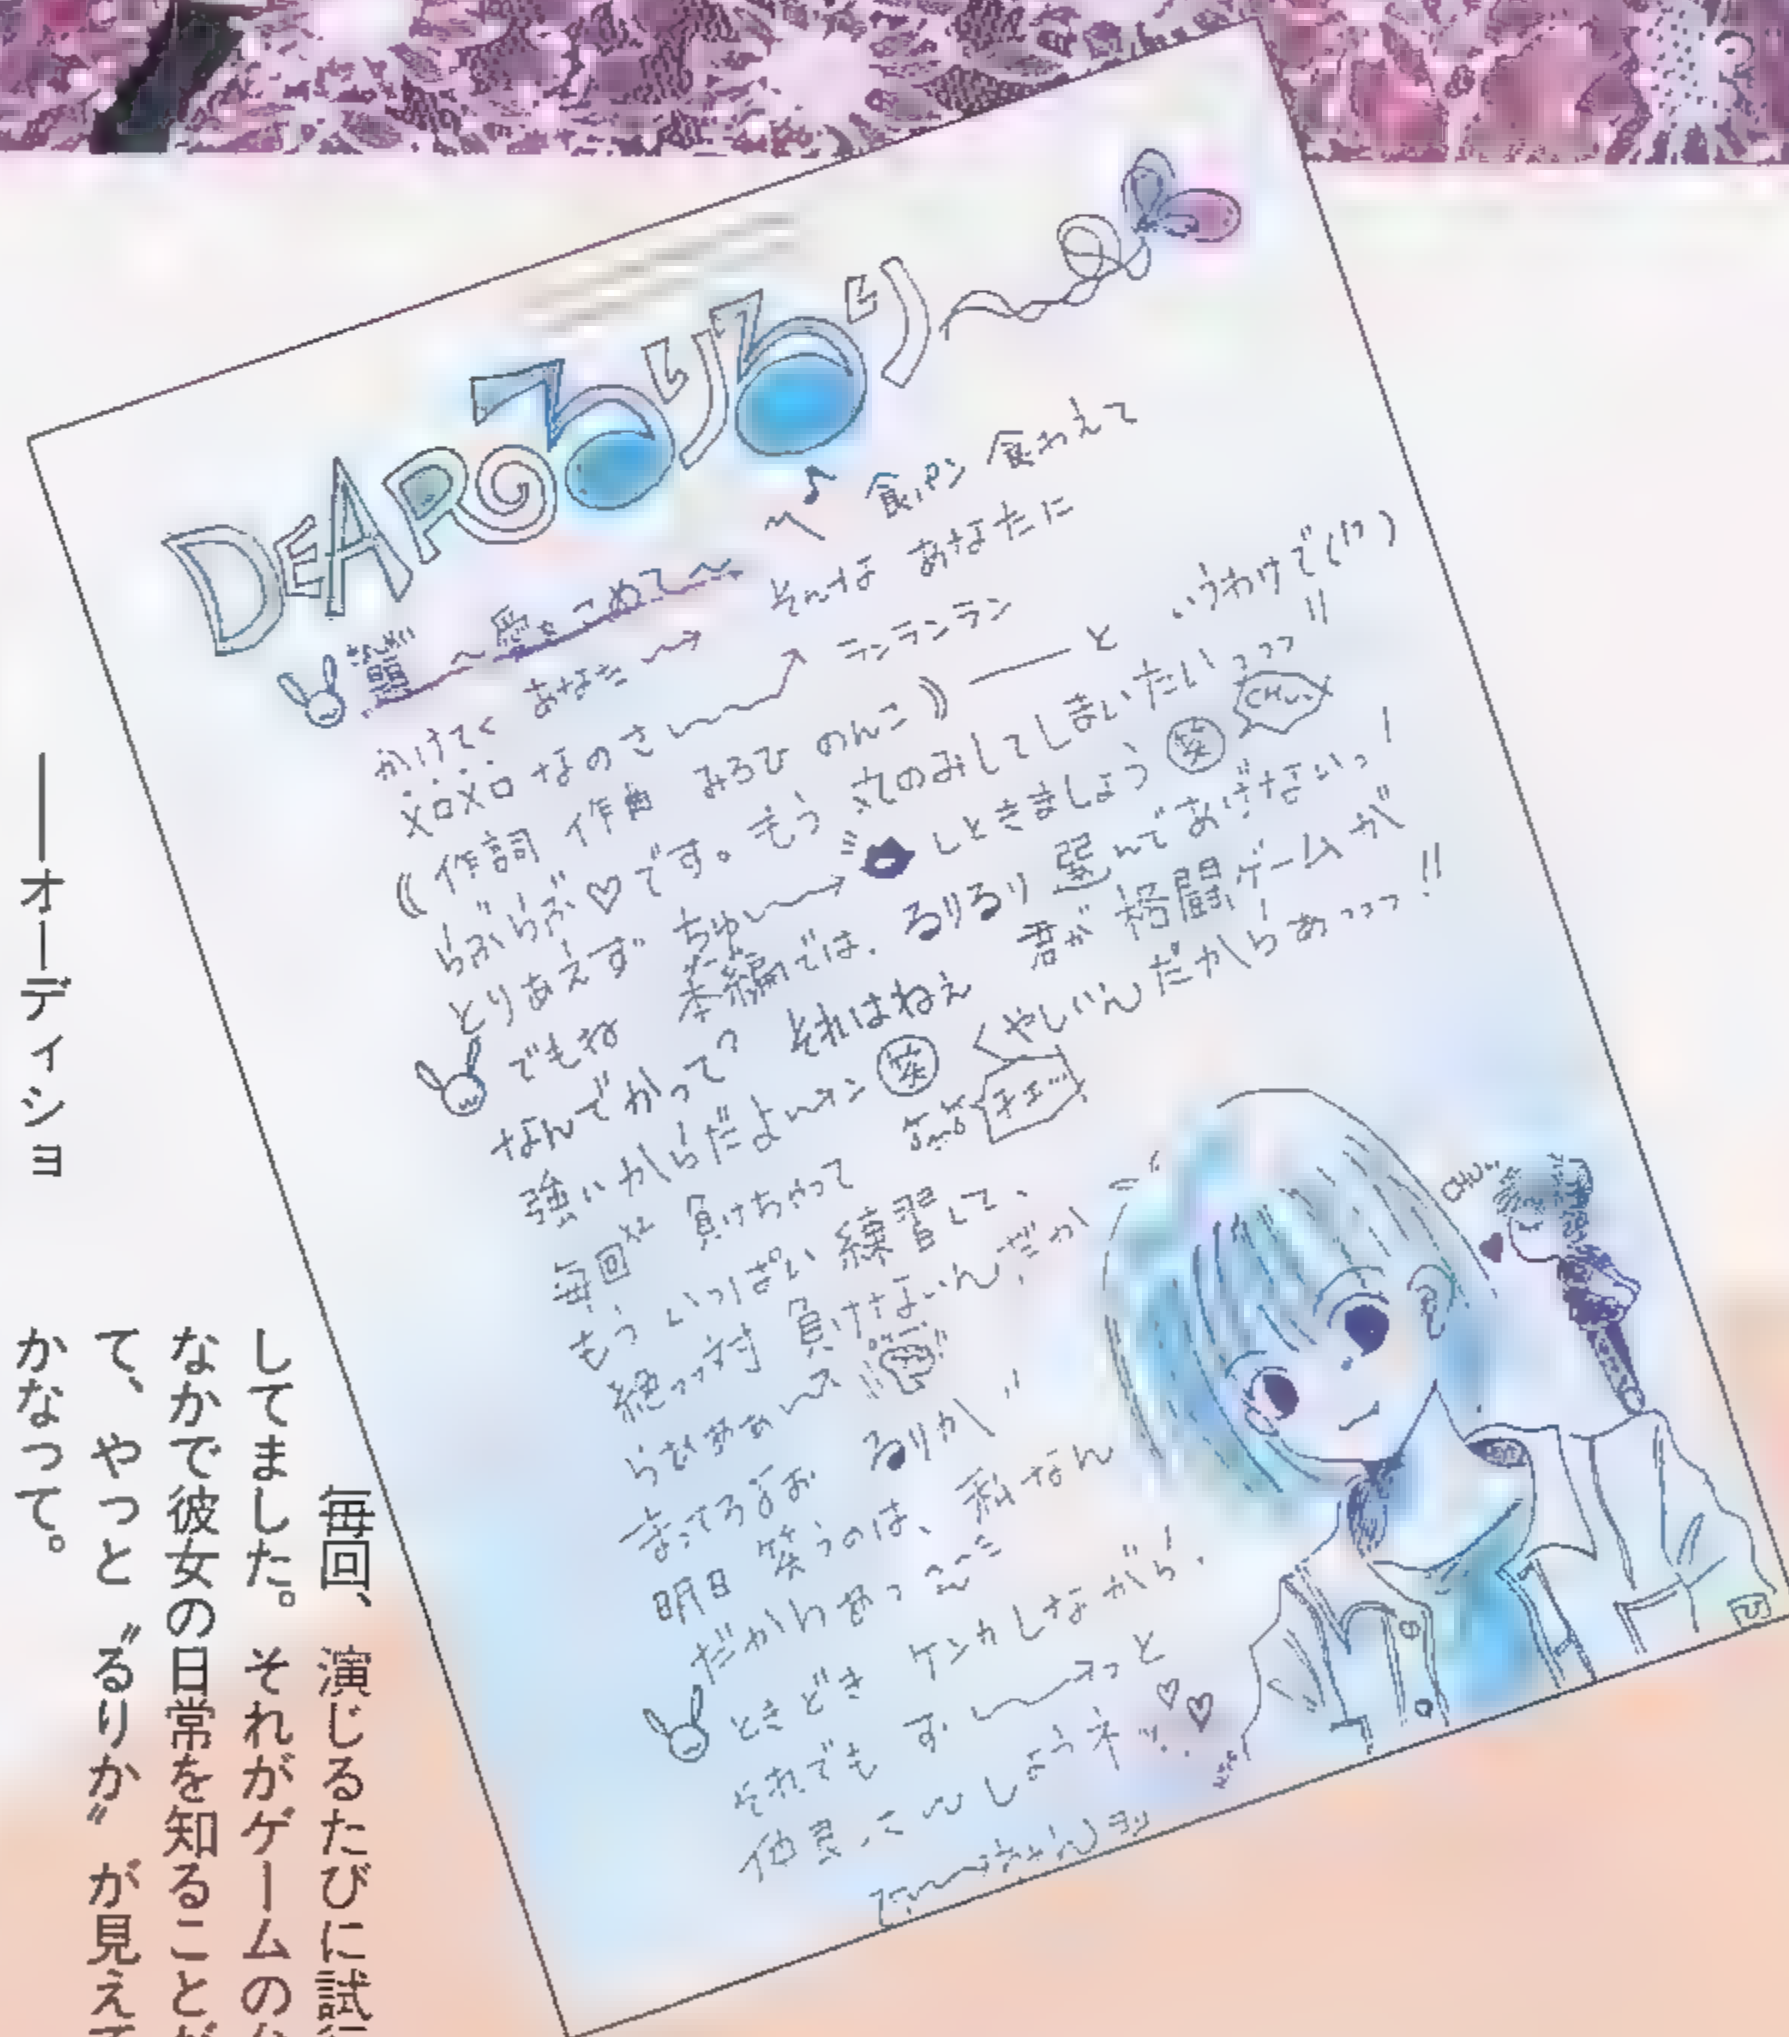 DEARるりるり
～愛をこめて～
♪ 食パン 食わえて
かけてく あなた そんな あなたに
メロメロ なのさ ランランラン
(作詞 作曲 みろひ のんこ) ――と いうわけで(!?)
らぶらぶ♡です。もう 丸のみしてしまいたいっっっ!!
とりあえず ちゅ～ しときましょう 笑 CHu
でもね 本編では、るりるり 選んであげないっ!
なんでかって? それはねぇ 君が 格闘ゲームが
強いからだよ 笑 くやしいんだからあっっっ!!
毎回 負けちゃって チェッ
もう いっぱい 練習して、
絶っっ対 負けないんだか
まってろよお るりか
明日 笑うのは、私なん
だからねあっ
ときどき ケンカしながら、
それでも ず～～っと
仲良 しようネ
CHU
――オーディショ
毎回、演じるたびに試行
してました。それがゲームの
なかで彼女の日常を知ることが
て、やっと〝るりか〟が見えて
かなって。